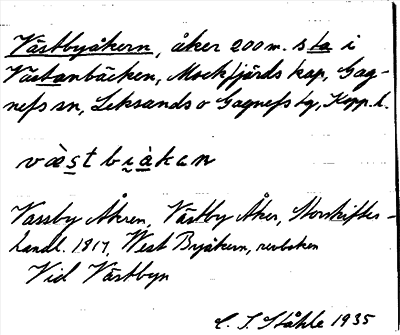 Västbyåkern, åker 200 m. s ta i
Västanbäcken, Mockfjärds kap, Gag-
nefs sn, Leksands o Gagnefs tg, Kopp. l.
væ̀stbiå̀kan
Vassby Åkren, Västby Åker, Storskiftes-
handl. 1817, West Byåkern, revboken
Vid Västbyn
C. I. Ståhle 1935